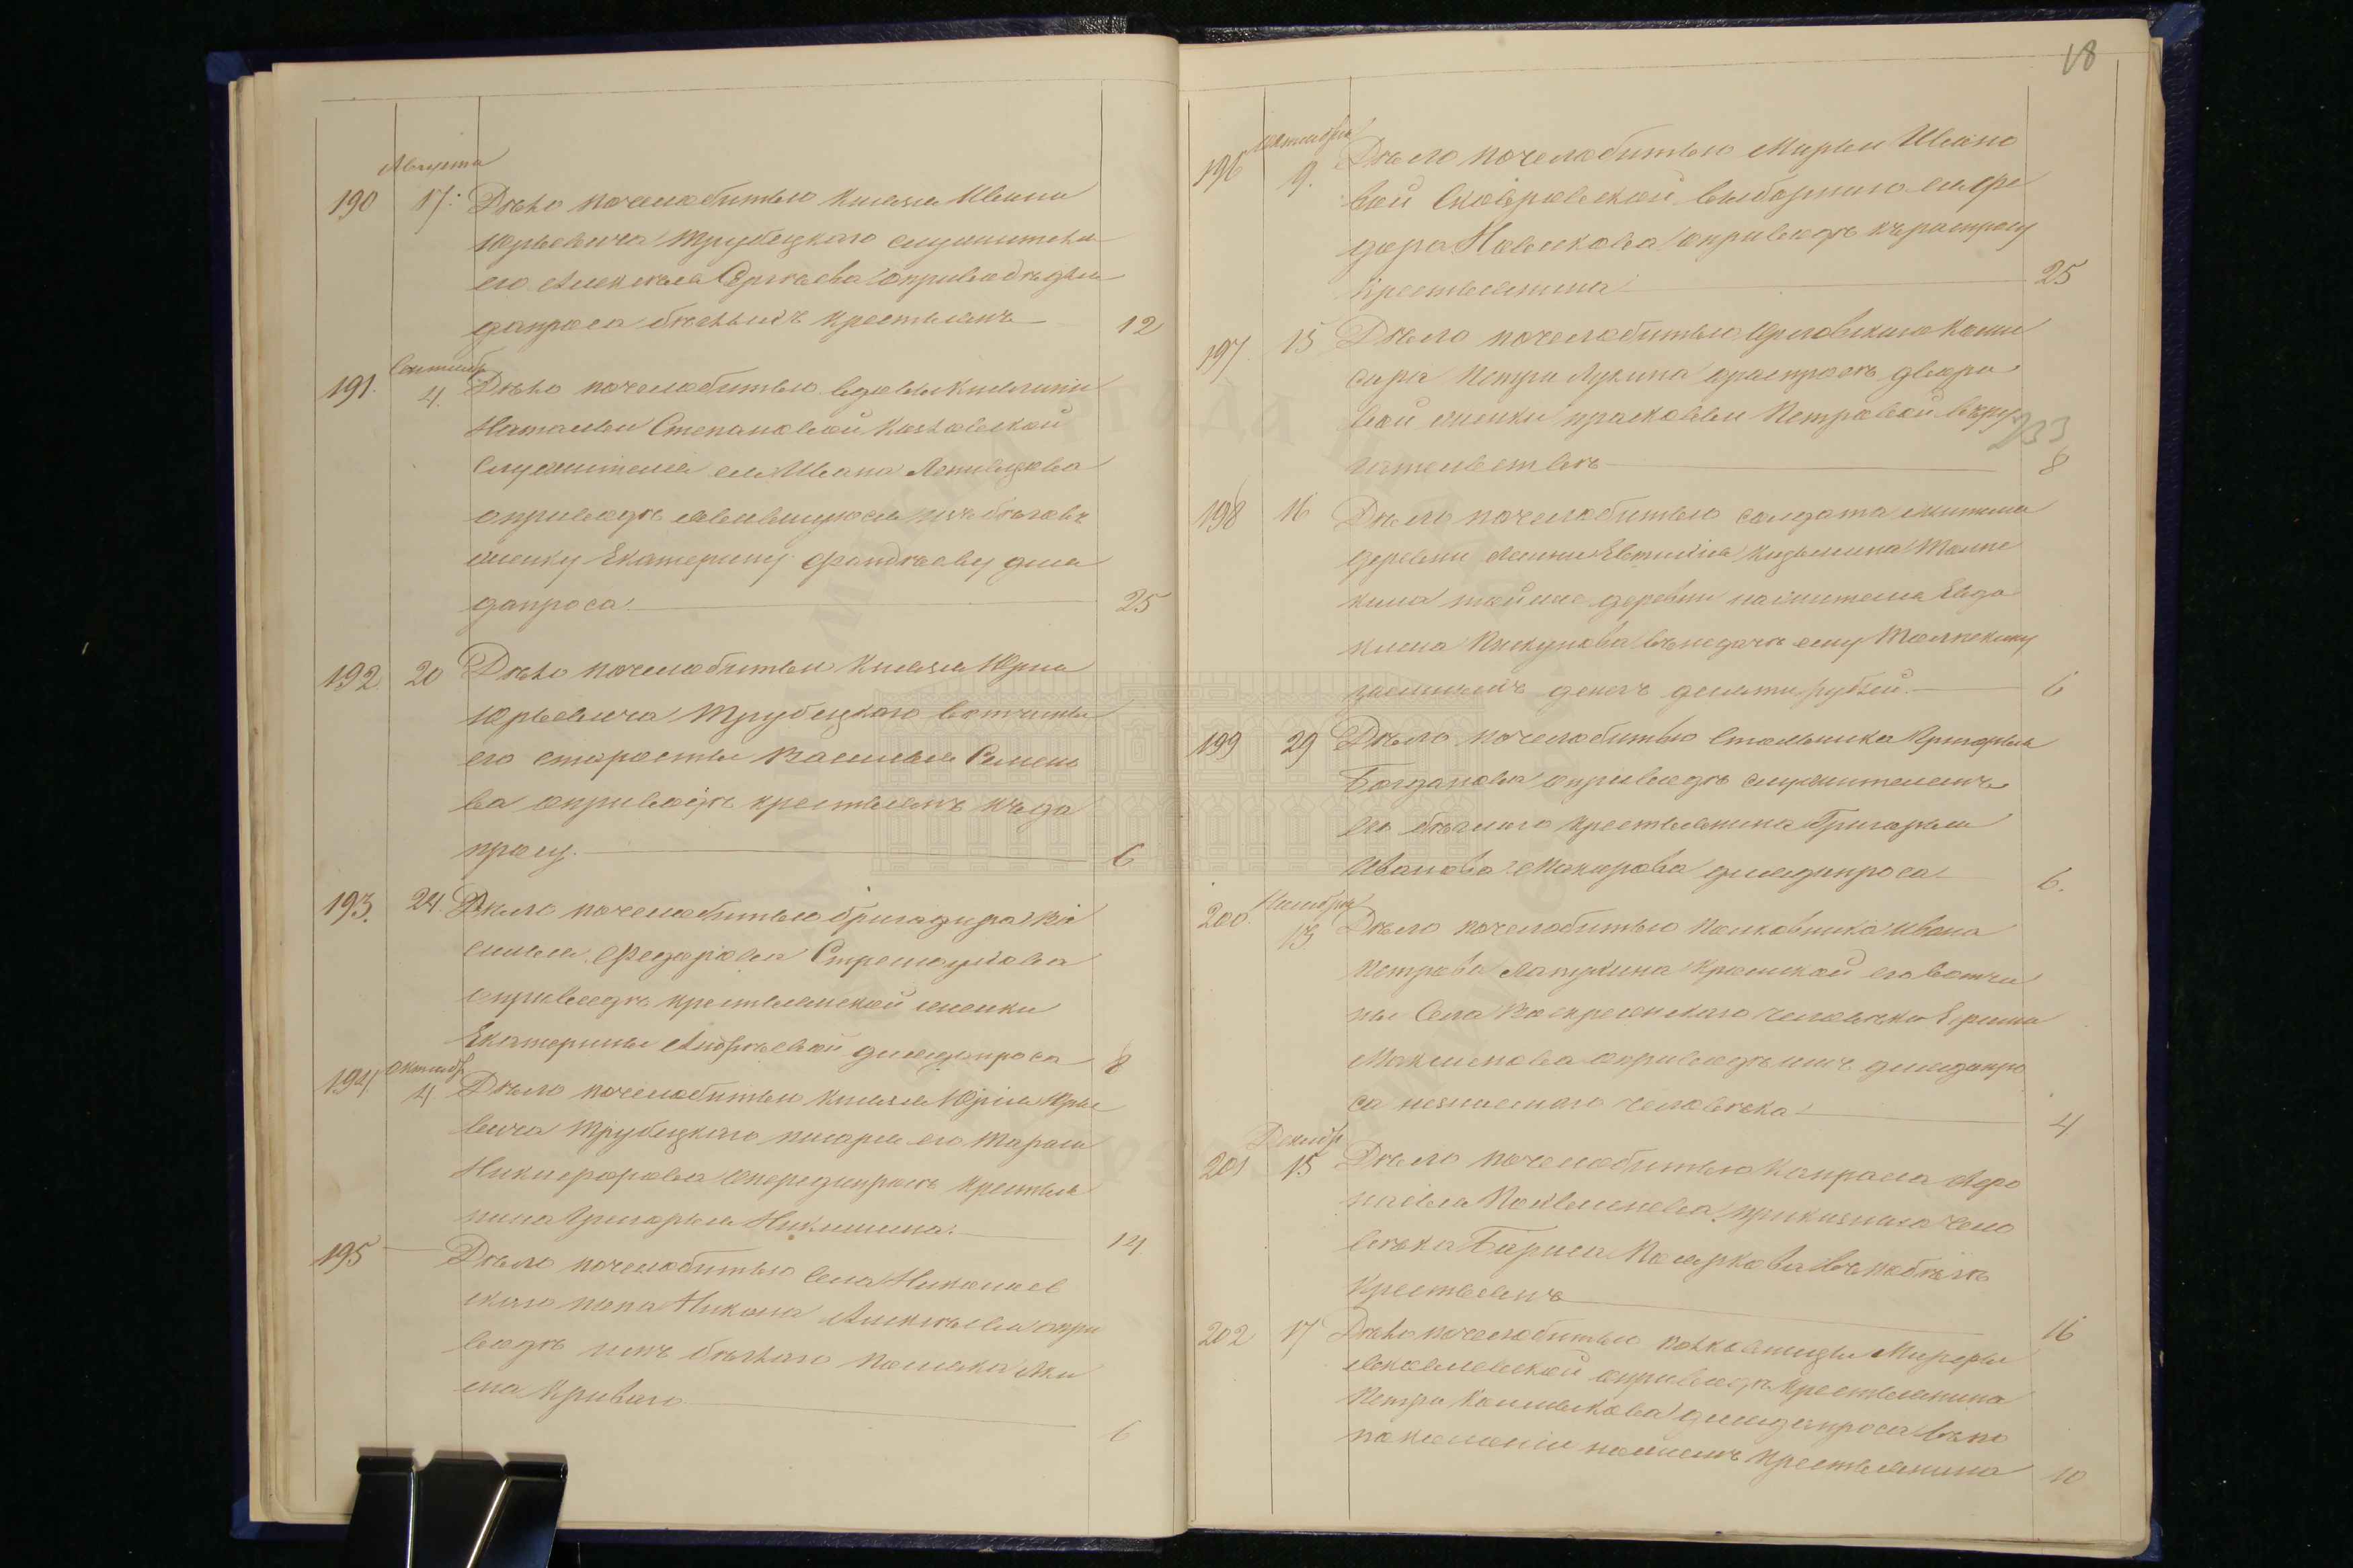 Августа
190 17. Дѣло почелобитью Князя Ивана
Юрьевича Трубецкаго служителя
его Алексѣя Сергѣева оприводѣ для
допроса бѣглыхъ крестьянъ 12
Сентябр
191. 4. Дѣло почелобитью вдовы Княгини
Натальи Степановой Козловской
служителя ея Ивана
оприводѣ явившуюся изъ бѣговъ
женку Екатерину Фандѣеву для
допроса 25
192. 20 Дѣло почелобитью Князя Юрья
Юрьевича Трубецкаго вотчины
его старосты Василья Семено
ва оприводѣ крестьянъ къ до
просу. 6
193. 24 Дѣло почелобитью бригадира Ва
силья Федорова Стремоухова
оприводѣ крестьянской женки
Екатерины Андрѣевой для допроса 8
Октябр
194. 4. Дѣло почелобитью Князя Юрья Юрье
вича Трубецкаго писаря его Тараса
Никифорова опередопросѣ крестья
нина Григорья Никишина. 14
195 Дѣло почелобитью села Николаев
скаго попа Никона Алексѣева опри
водѣ имъ бѣглаго Поляка Яки
ма Криваго 6
18
Октября
196 9. Дѣло почелобитью Марьи Ивано
вой выборнаго ея Фе
дора Новикова оприводѣ къ распросу
Крестьянина 25
197. 15 Дѣло почелобитью Орловскаго Коми
сара Петра Лукина о распросѣ дворо
вой женки Прасковьи Петровой въ ру
гательствѣ 8
233
198 16 Дѣло почелобитью солдата жителя
деревни Евтифія Кузьмина Толпе
кина тойже деревни на жителя Евдо
кима Пискунова въ недачѣ ему Толпекину
заемныхъ денегъ девяти рублей. 6
199 29 Дѣло почелобитью Стольника Григорья
Богданова оприводѣ служителемъ
его бѣглаго крестьянина Григорья
Иванова Макарова для допроса 6.
Ноября
200. 13 Дѣло почелобитью Полковника Ивана
Петрова Лапухина Кромской его вотчи
ны Села Воскресенскаго человѣка Ефима
Максимова оприводѣ имъ для допро
са незнаемаго человѣка. 4
Декабр
201 15 Дѣло почелобитью Капрала Афо
насья приказнаго чело
вѣка Бориса въ побѣгѣ
Крестьянъ 16
202 17 Дѣло почелобитью полковницы Марфы
оприводѣ крестьянина
Петра для допроса въ по
крестьянина 10